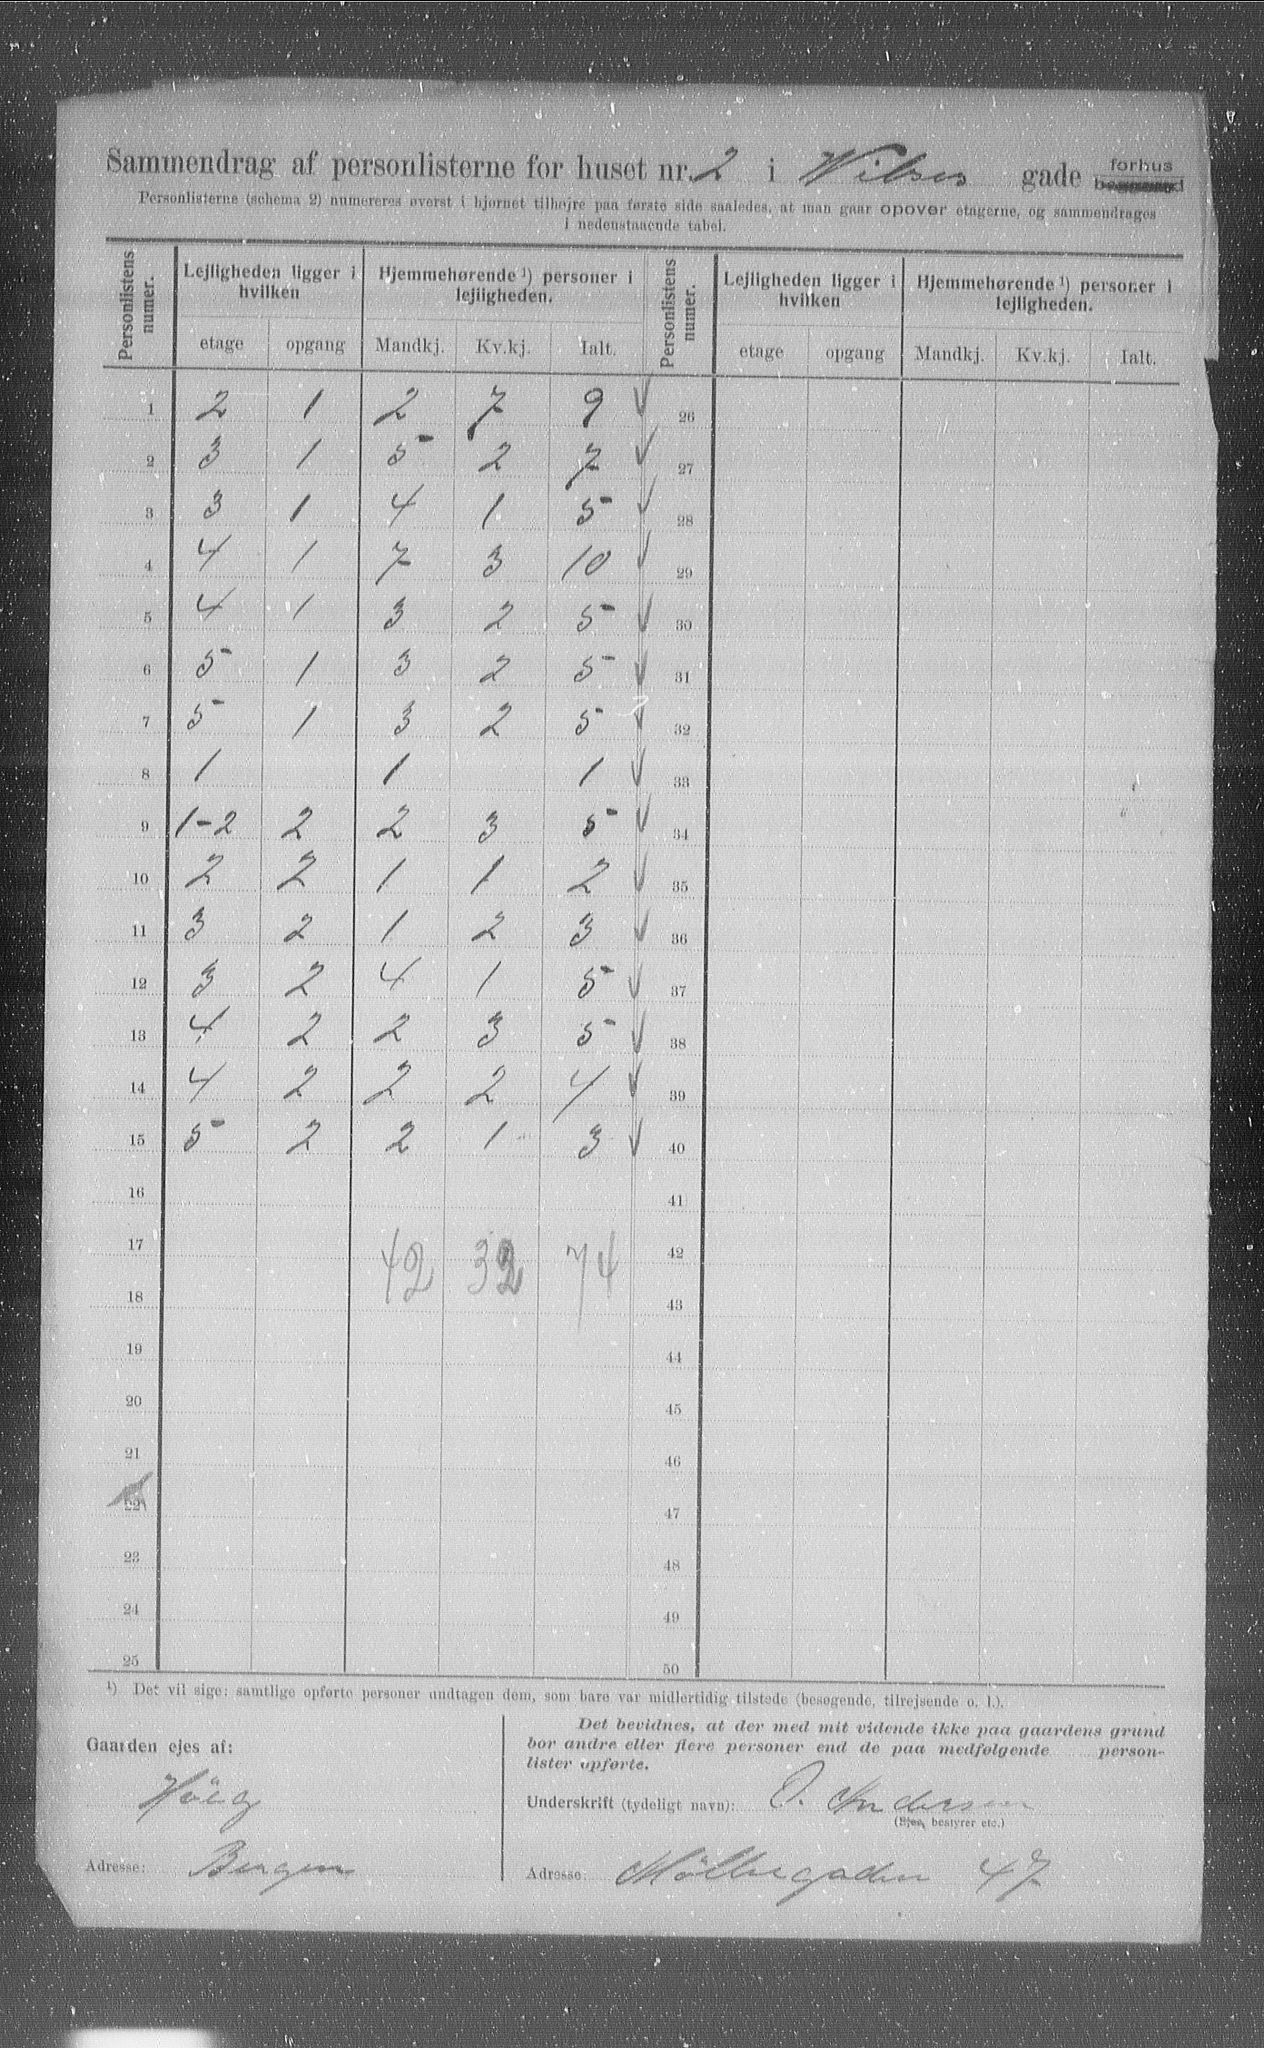 Sammendrag af personlisterne for huset nr. 2 i Wilses gade forhus
Personlisterne (schema 2) numereres øverst i hjørnet tilhøjre paa første side saaledes, at man gaar opover etagerne, og sammendrages
i nedenstaaende tabel.
Personlistens numer. Lejligheden ligger i hvilken Hjemmehørende ¹) personer i lejligheden. Personlistens numer. Lejligheden ligger i hvilken Hjemmehørende ¹) personer i lejligheden.
etage opgang Mandkj. Kv.kj. Ialt. etage opgang Mandkj. Kv.kj. Ialt.
1 2 1 2 7 9 26
2 3 1 5 2 7 27
3 3 1 4 1 5 28
4 4 1 7 3 10 29
5 4 1 3 2 5 30
6 5 1 3 2 5 31
7 5 1 3 2 5 32
8 1 1 1 33
9 1-2 2 2 3 5 34
10 2 2 1 1 2 35
11 3 2 1 2 3 36
12 3 2 4 1 5 37
13 4 2 2 3 5 38
14 4 2 2 2 4 39
15 5 2 2 1 3 40
16 41
17 42 32 74 42
18 43
19 44
20 45
21 46
22 47
23 48
24 49
25 50
¹) Det vil sige: samtlige opførte personer undtagen dem, som bare var midlertidig tilstede (besøgende, tilrejsende o. l.).
Gaarden ejes af:
Höeg
Adresse: Bergen
Det bevidnes, at der med mit vidende ikke paa gaardens grund
bor andre eller flere personer end de paa medfølgende person-
lister opførte.
Underskrift (tydeligt navn): O. Andersen
(Ejer, bestyrer etc.)
Adresse: Möllergaden 47